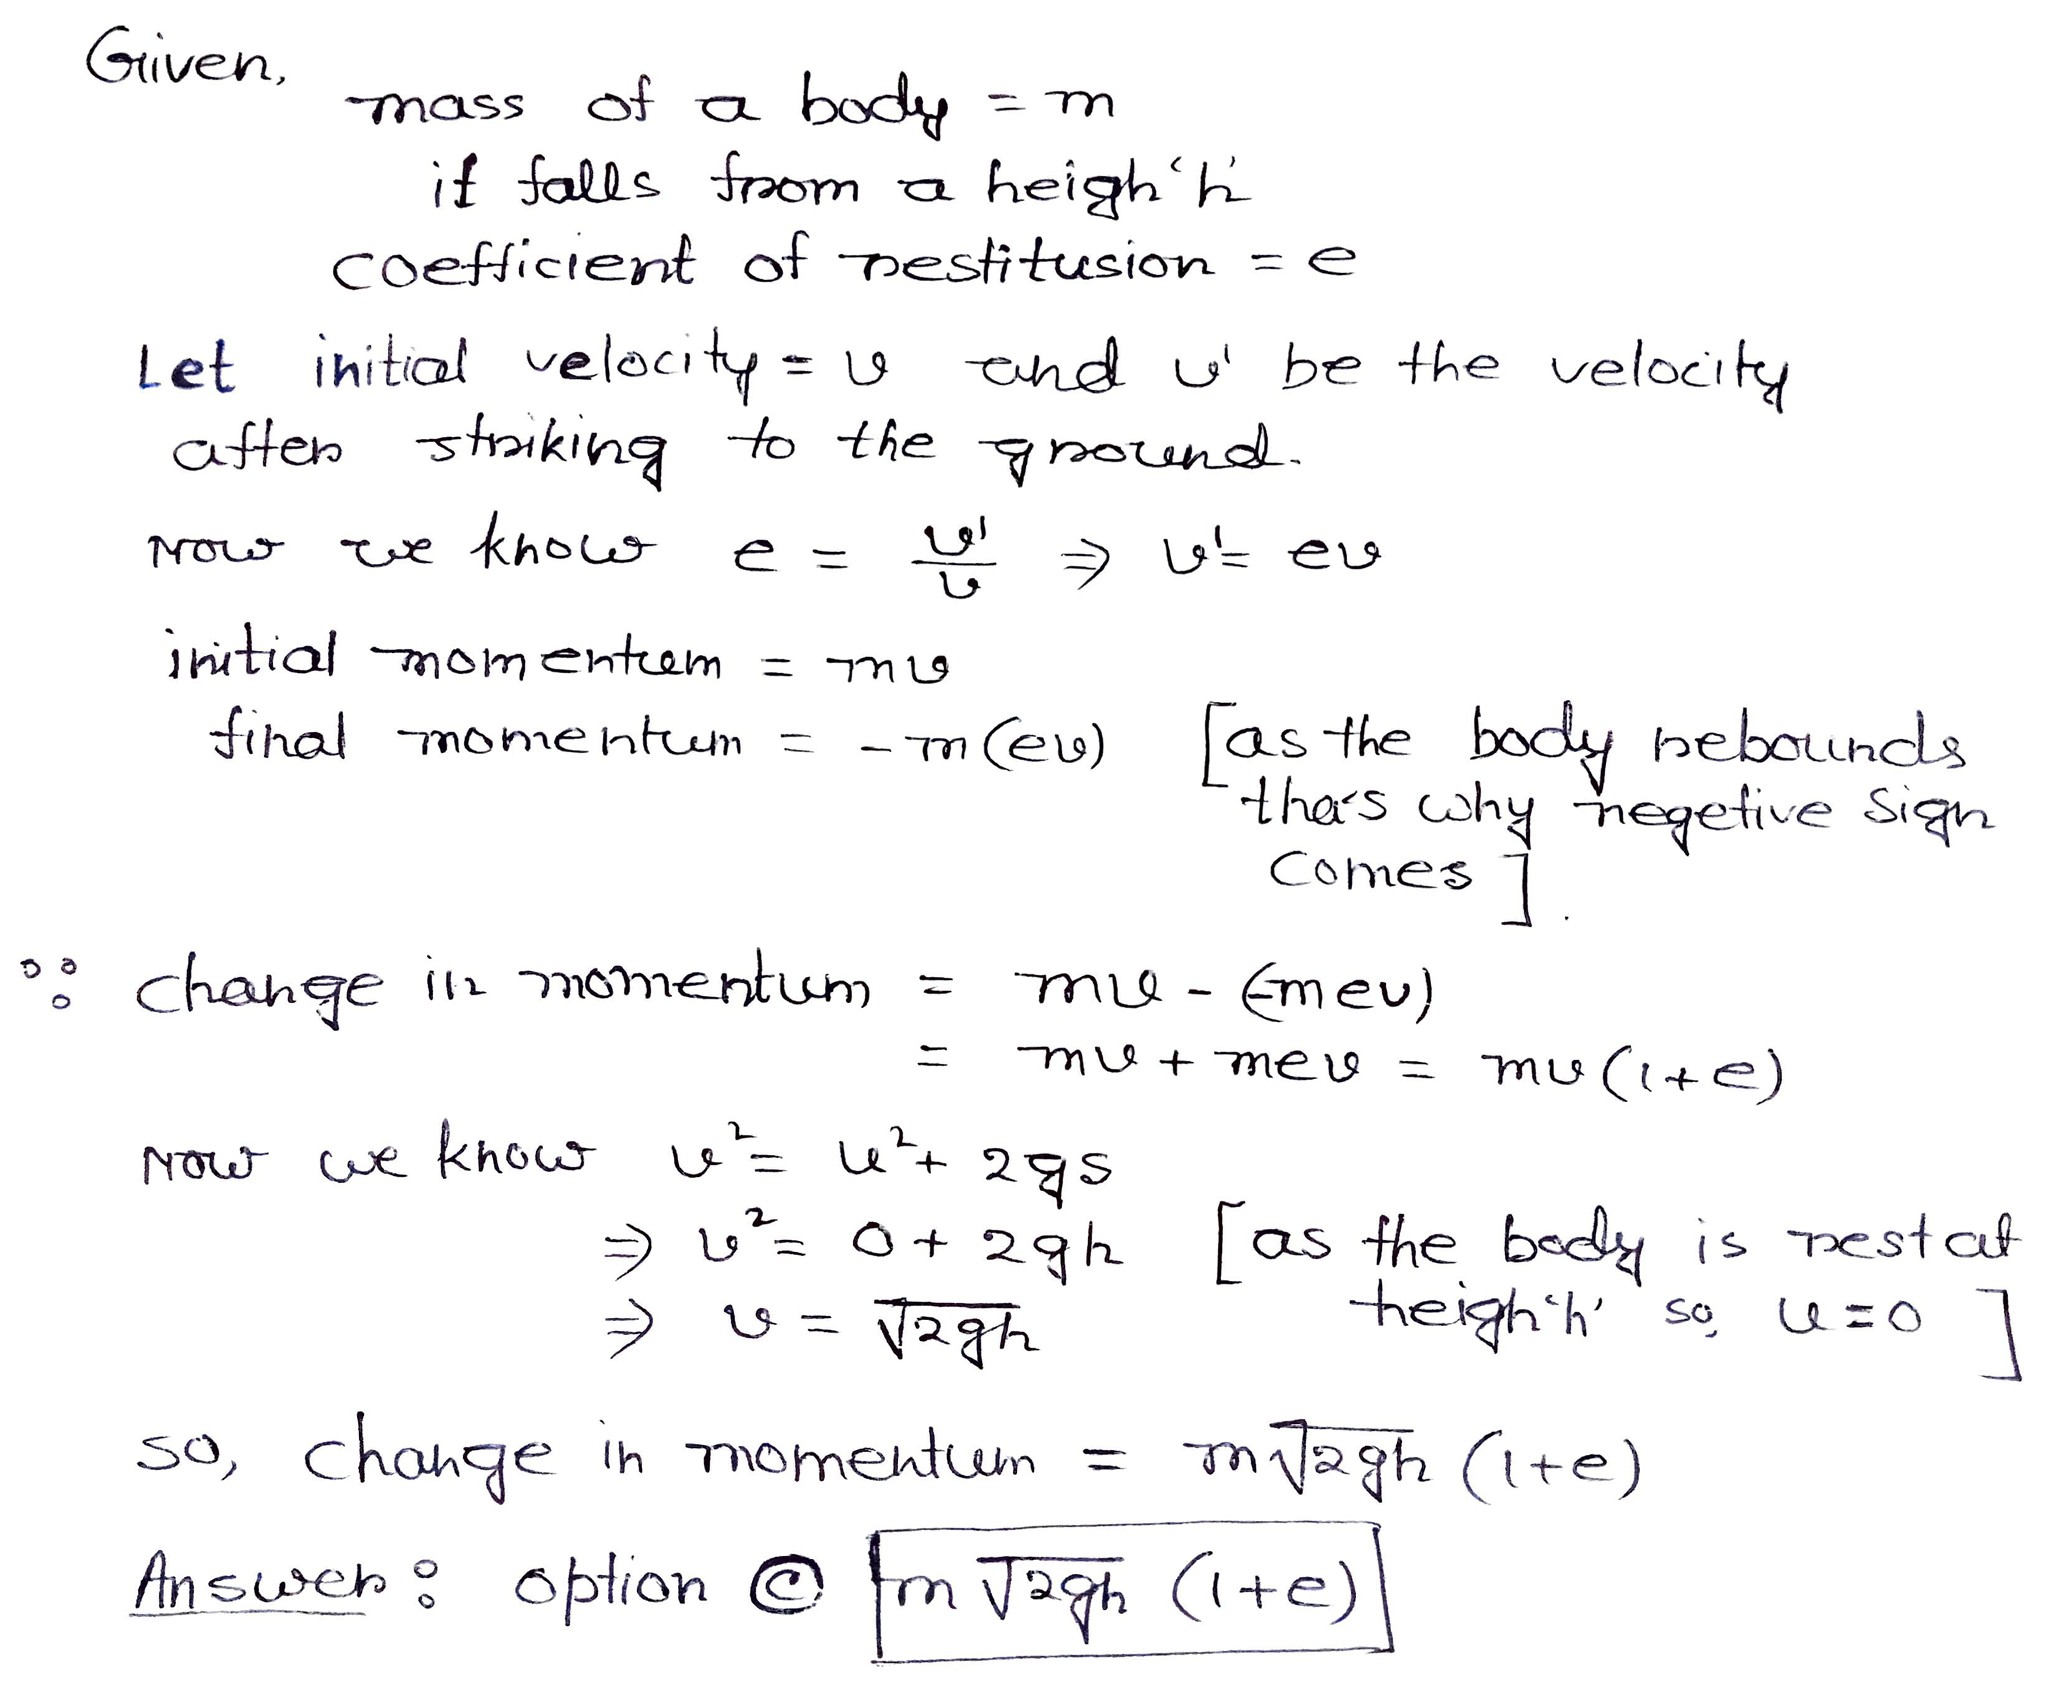 Given,
mass of a body = m
it falls from a heigh 'h'
coefficient of restitusion = e
Let initial velocity = v and v' be the velocity
after striking to the ground.
Now we know e = v'/v ⇒ v' = ev
initial momentum = mv
final momentum = - m(ev) [as the body rebounds
that's why negetive sign
comes].
∵ change in momentum = mv - (-mev)
= mv + mev = mv(1+e)
Now we know v² = u² + 2gs
⇒ v² = 0 + 2gh [as the body is rest at
⇒ v = √2gh heigh 'h' so, u = 0]
so, change in momentum = m√2gh (1+e)
Answer: option ⓒ m√2gh (1+e)